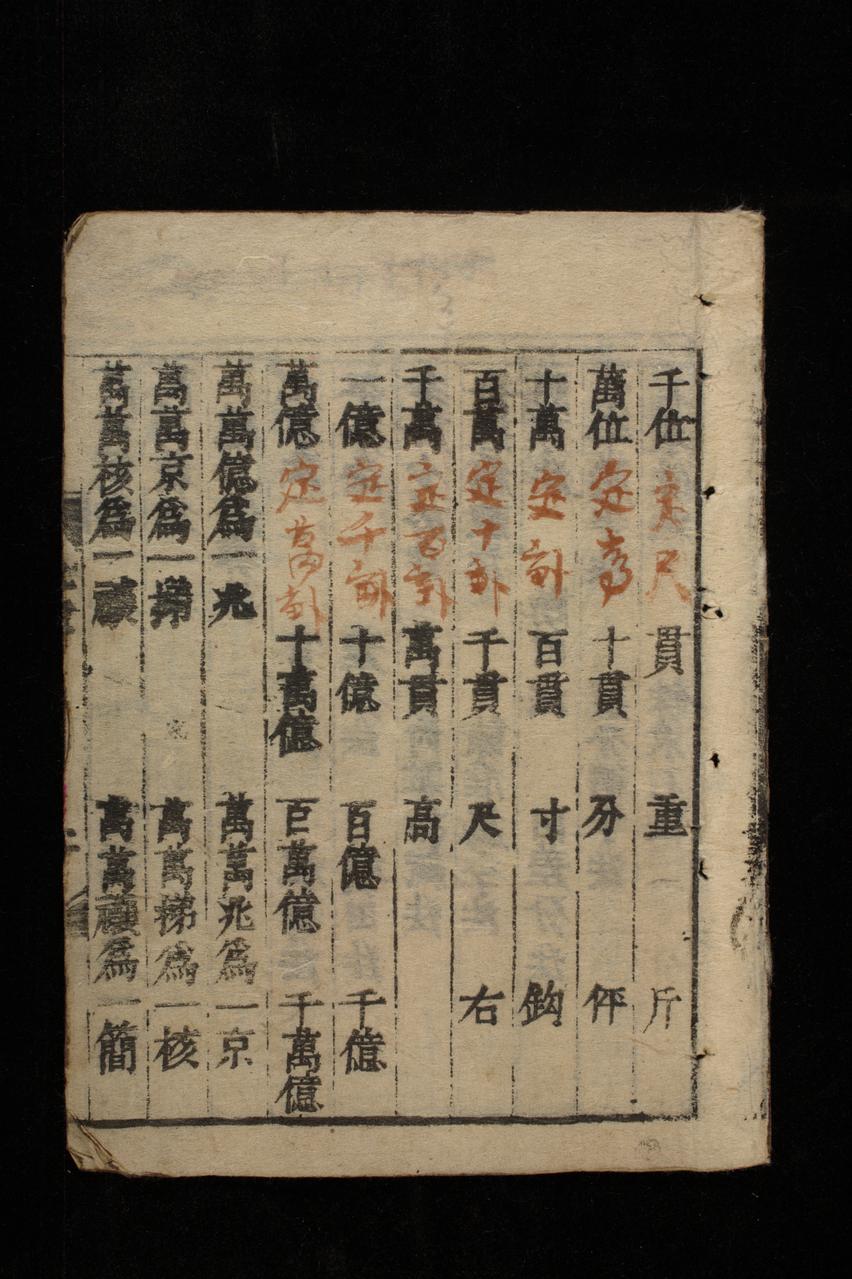 千位 定尺 貫 重 斤
萬位 定高 十貫 分 秤
十萬 定卦 百貫 寸 鈎
百萬 定十卦 千貫 尺 右
千萬 定百卦 萬貫 高
一億 定千卦 十億 百億 千億
萬億 定萬卦 十萬億 百萬億 千萬億
萬萬億爲一兆 萬萬兆爲一京
萬萬京爲一梯 萬萬梯爲一核
萬萬核爲一 萬萬爲一簡